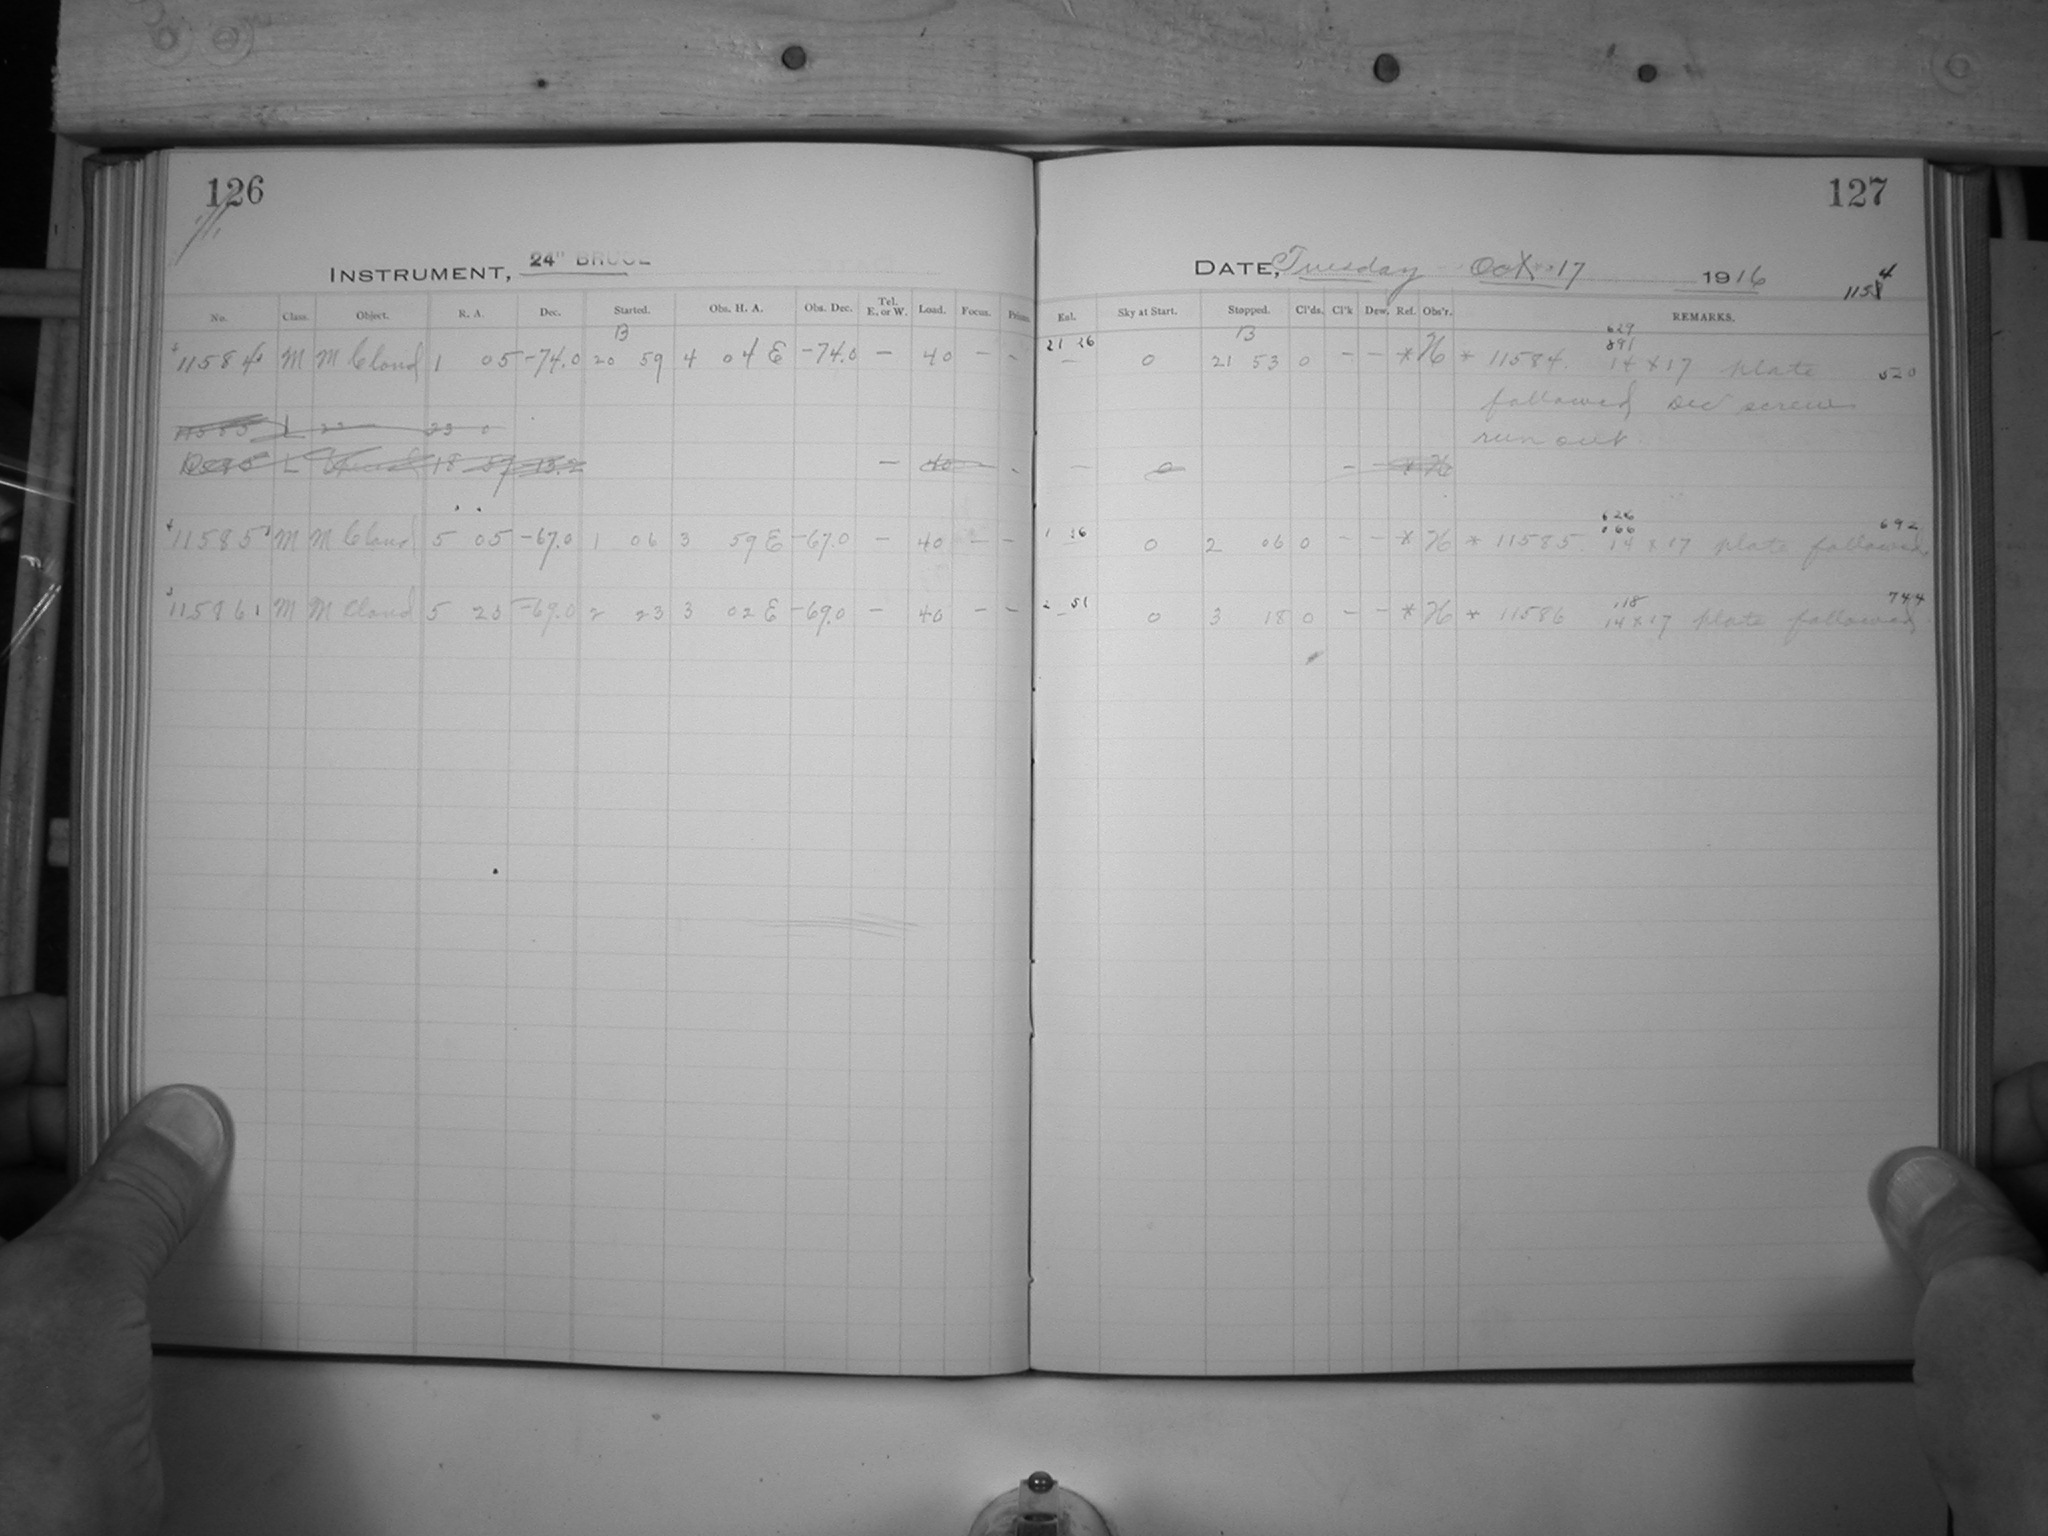 126
INSTRUMENT, 24" BRUCE
No. Class. Object. R. A. Dec. Started. Obs. H. A. Obs. Dec. Tel. E. or W. Load. Focus.
B
11584 M M Cloud 1 05 -74.0 20 59 4 04 E -74.0 — 40 - -
11585 L 23 0
L 18 59 -13.2 — 40 -
11585 M M Cloud 5 05 -67.0 1 06 3 59 E -67.0 — 40 - -
11586 M M Cloud 5 23 -69.0 2 23 3 02 E -69.0 — 40 - -
127
DATE, Tuesday Oct 17 1916
1158 4
Exl. Sky at Start. Stopped. Cl'ds. Cl'k Dew. Ref. Obs'r. REMARKS.
B 629
21 26 891
— 0 21 53 0 - - * H * 11584. 14 x 17 plate 520
followed, Dec screw
run out.
— 0 - - * H
626 692
1 36 066
0 2 06 0 - - * H * 11585 14 x 17 plate followed
2 51 .118 744
— 0 3 18 0 - - * H * 11586 14 x 17 plate followed